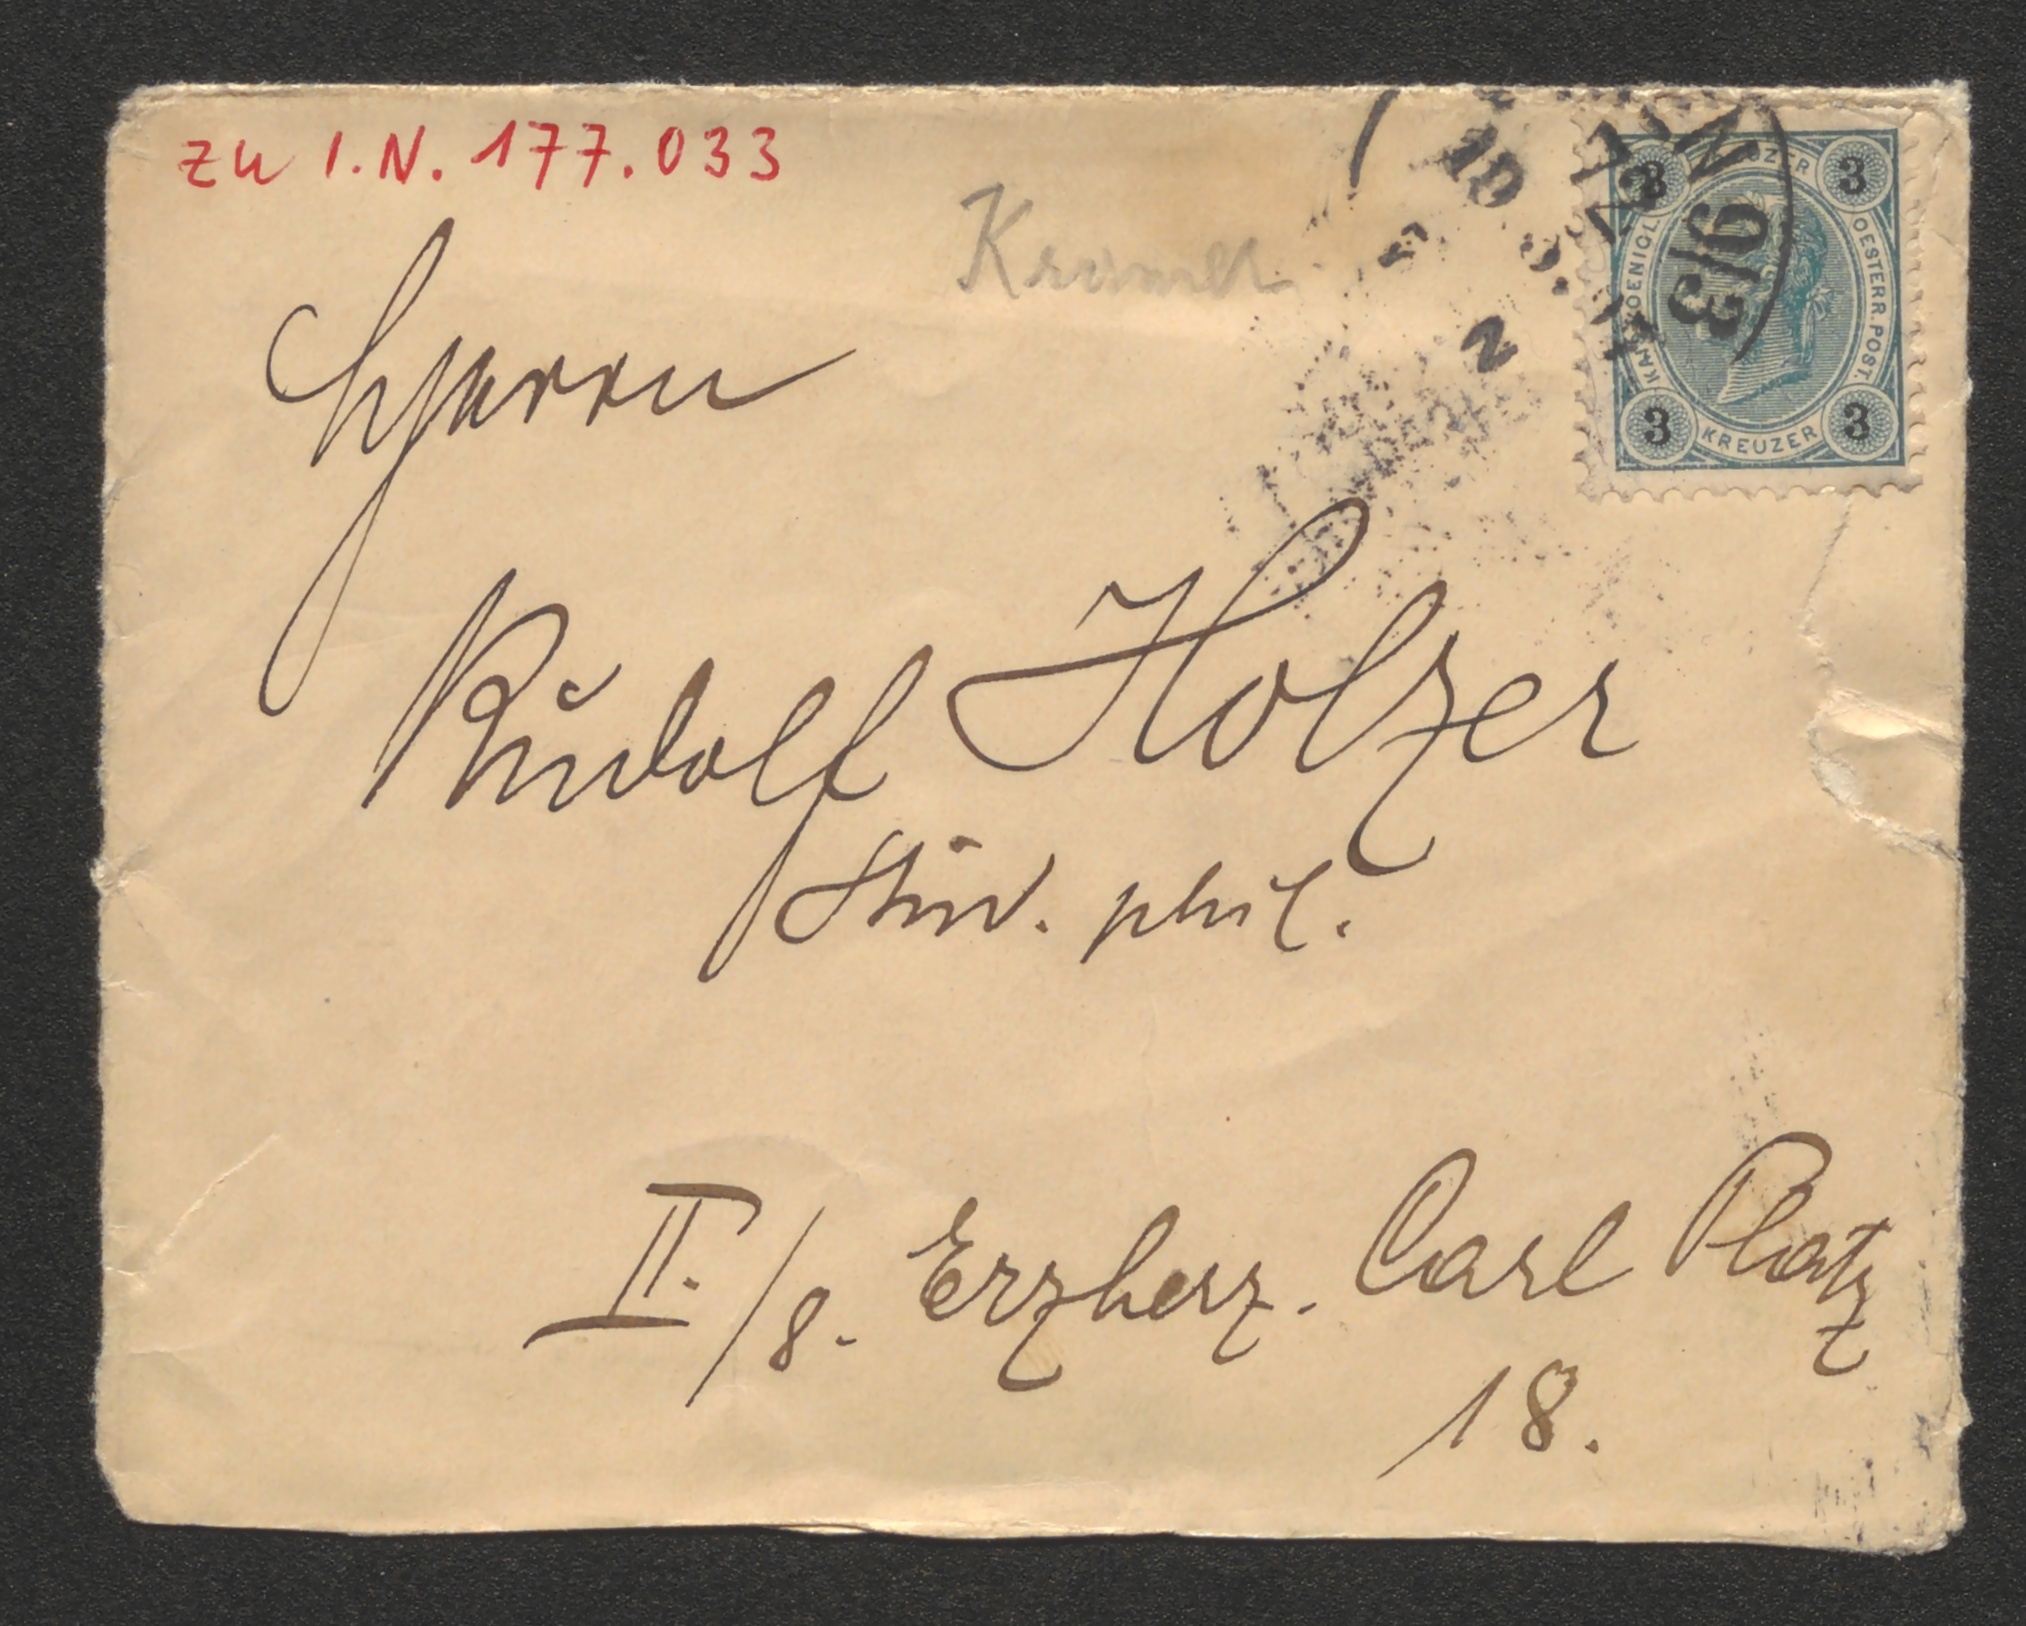 zu I.N. 177.033
Kramer
Herrn
Rudolf Holzer
Stud. phil.
II./8. Erzherz. Carl Platz
18.
KREUZER
3 3
KAIS. KOENIGL. OESTERR. POST.
3 3
KREUZER
N 9/3
2